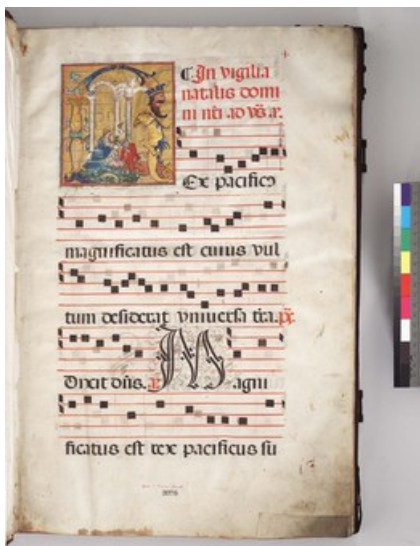 In vigilia
natalis domi
ni nr̄i ad vs̄. a.
Ex pacificꝰ
magnificatus est cuius vul
tum desiderat vniuersa tr̄a. ps̄.
Dixit dn̄s. a. Magni
ficatus est rex pacificus su